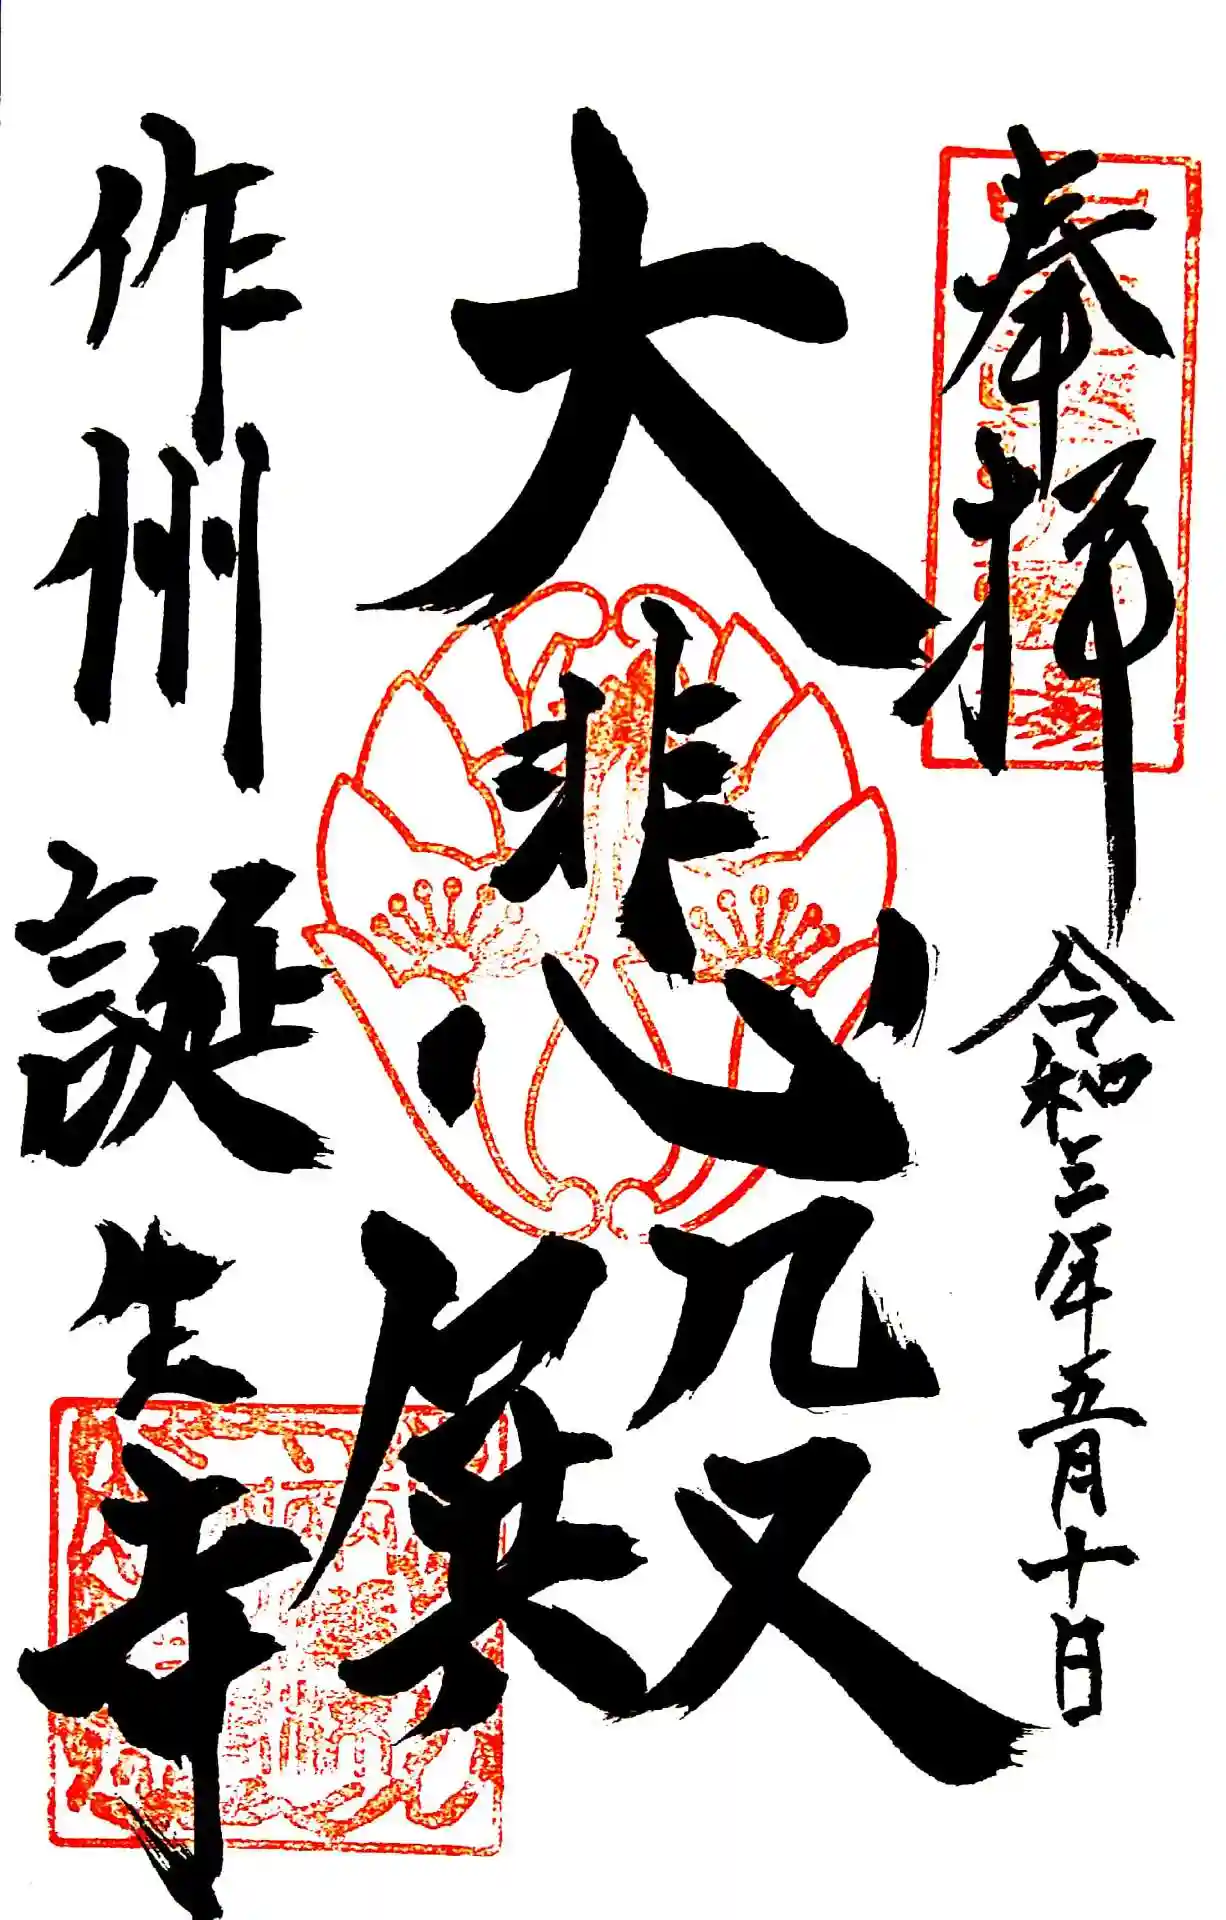 奉拝
令和三年五月十日
大悲殿
作州誕生寺